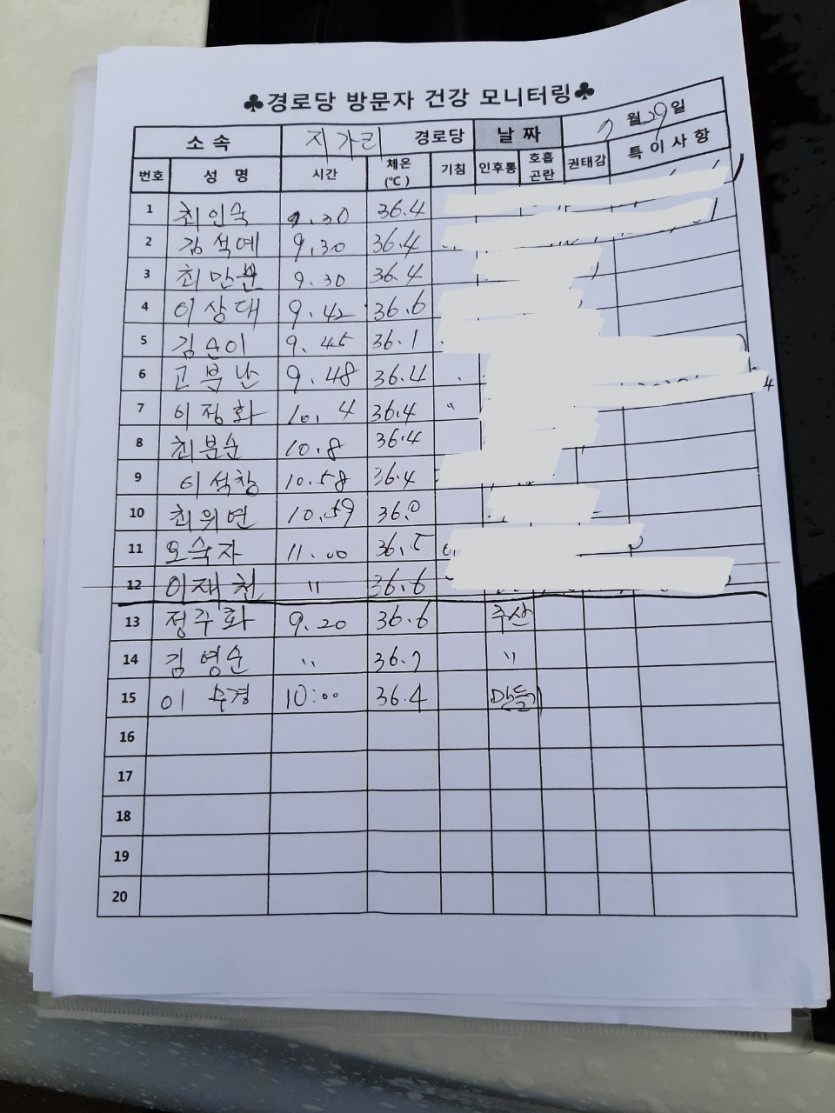 ♣경로당 방문자 건강 모니터링♣
소 속 지가리 경로당 날 짜 7월 29일
번호 성 명 시간 체온(℃) 기침 인후통 호흡곤란 권태감 특 이 사 항
1 최인숙 9.30 36.4
2 김석예 9.30 36.4
3 최만분 9.30 36.4
4 이상대 9.42 36.6
5 김순이 9.45 36.1
6 고부난 9.48 36.4
7 이정화 10.4 36.4 "
8 최분순 10.8 36.4
9 이석창 10.58 36.4
10 최위연 10.59 36.0
11 오숙자 11.00 36.5
12 이재천 " 36.6
13 정주화 9.20 36.6 주산
14 김영순 " 36.7 "
15 이수경 10:00 36.4 만들기
16
17
18
19
20